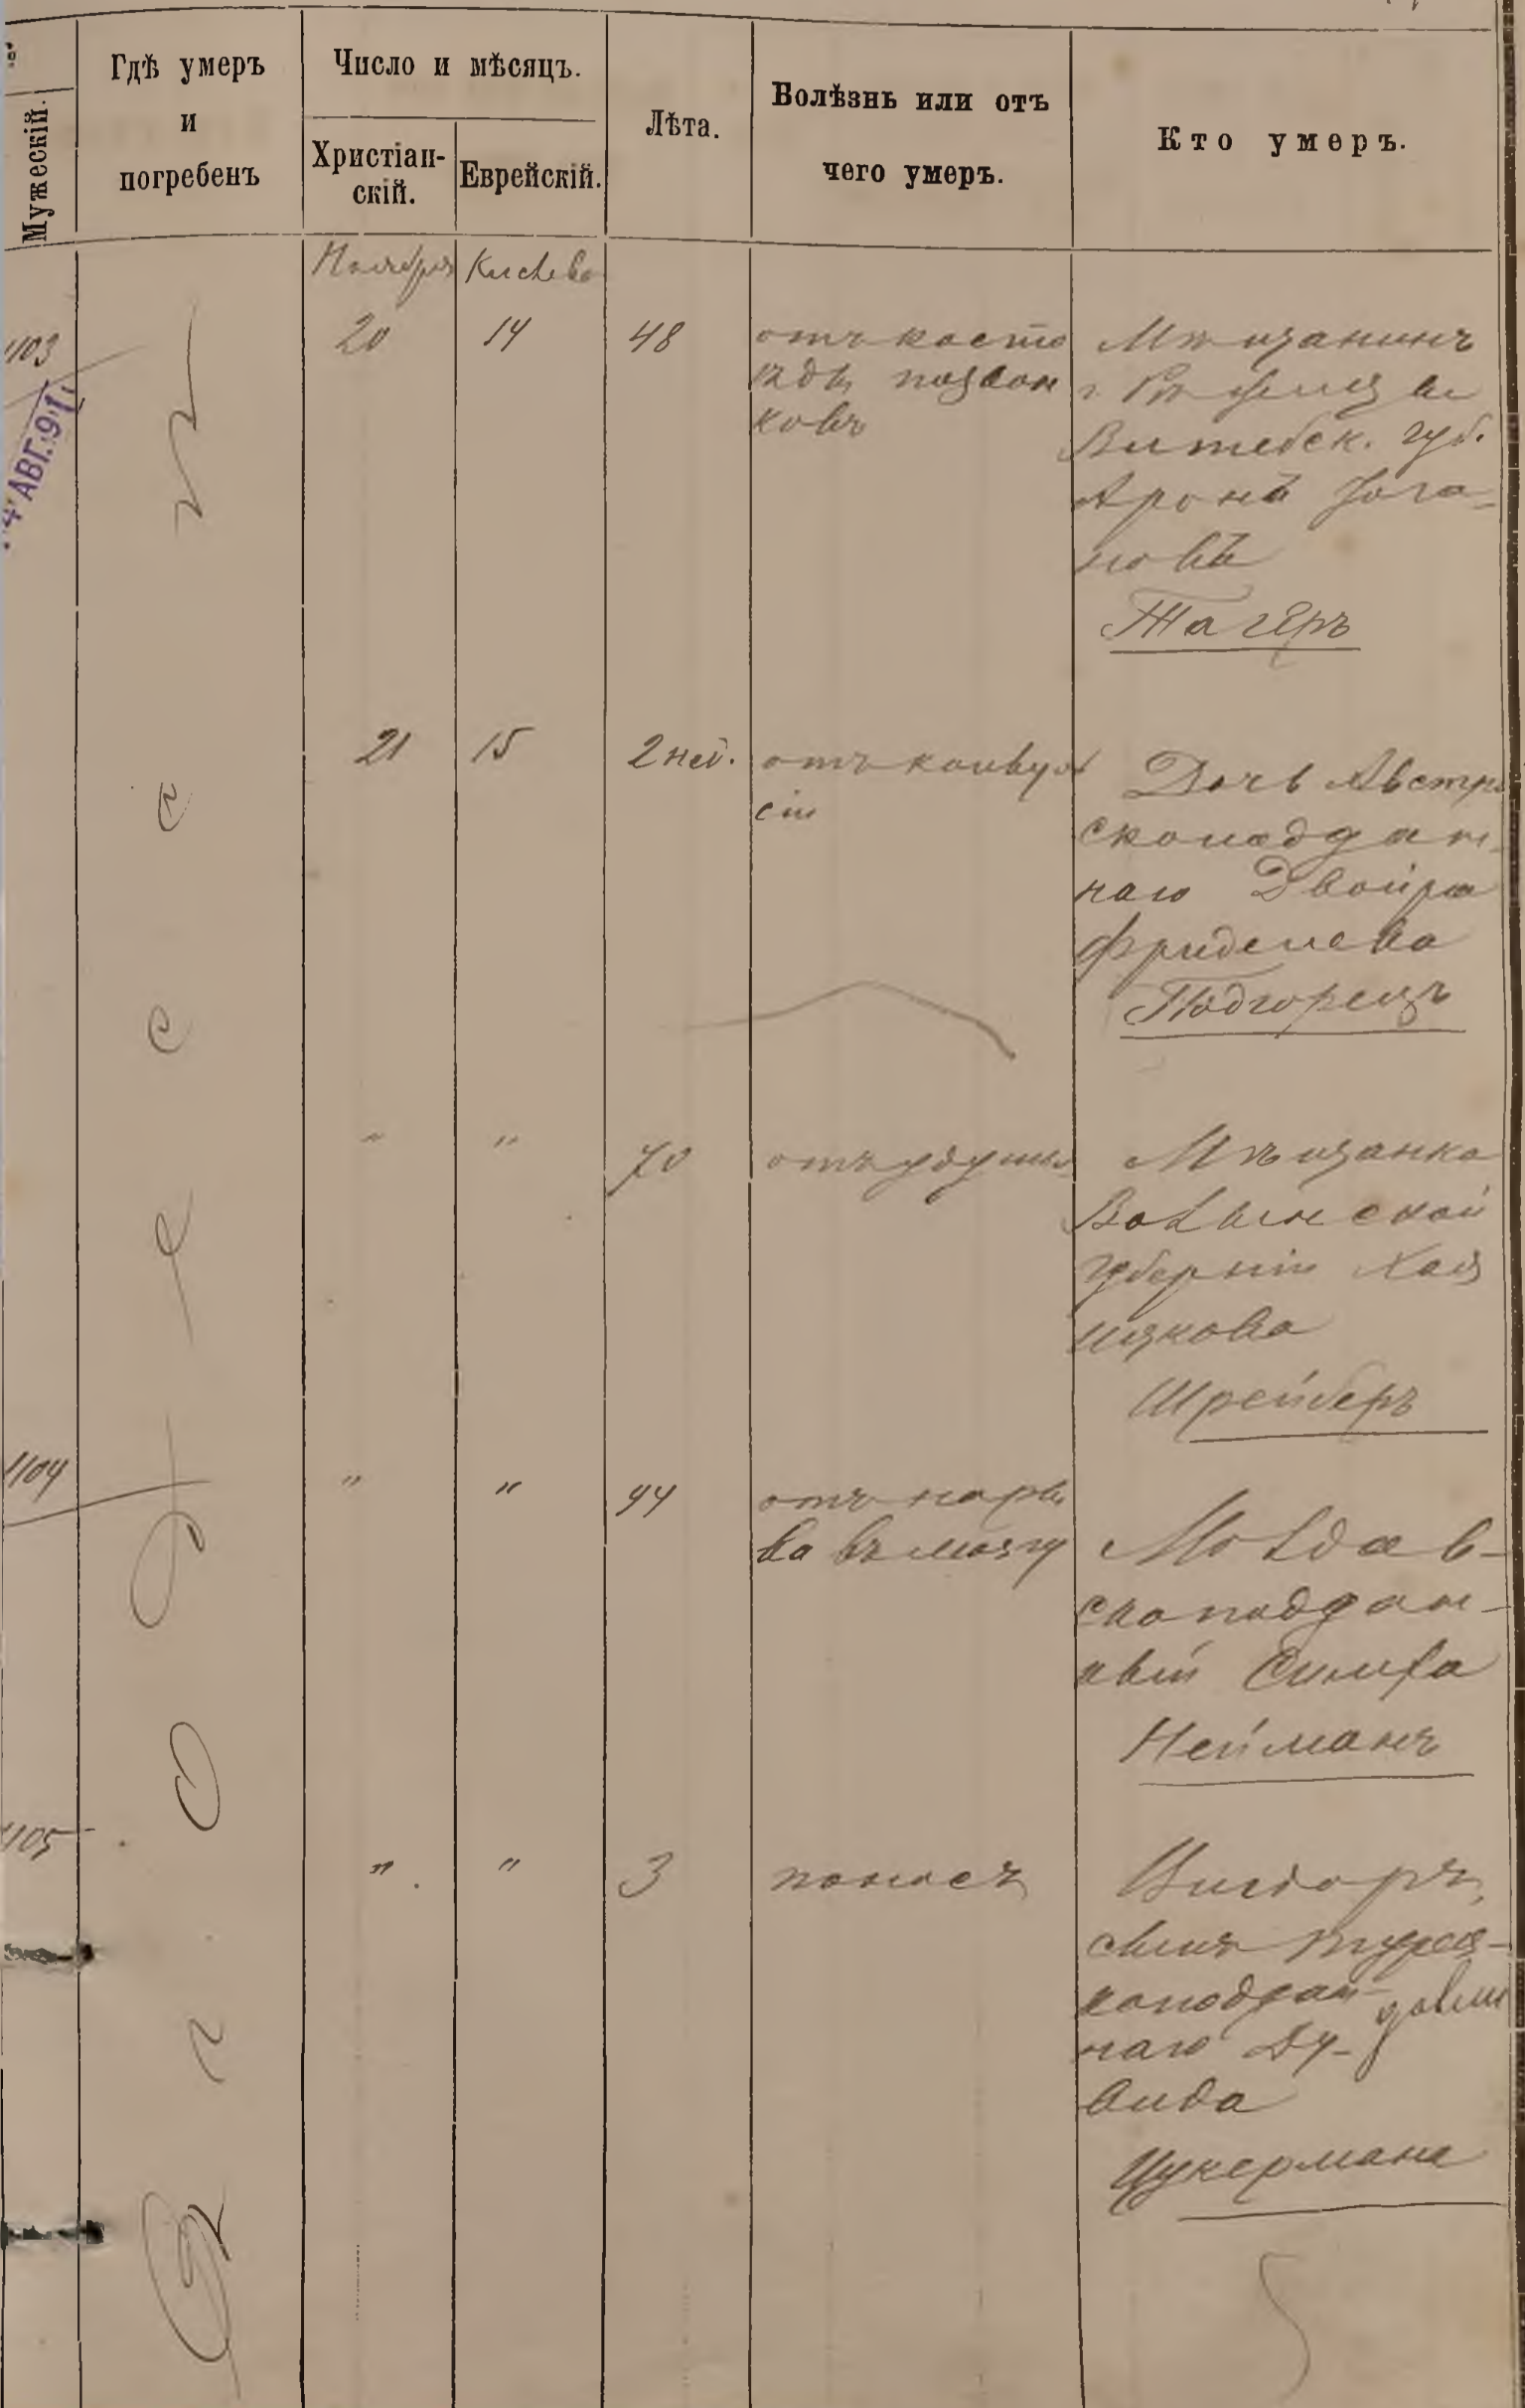 Мужескій.
Гдѣ умеръ
и
погребенъ
Число и мѣсяцъ.
Христіан-
скій.
Еврейскій.
Лѣта.
Болѣзнь или отъ
чего умеръ.
Кто умеръ.
Ноября
Кислева
1103
4 АВГ. 91
20
14
48
отъ косто
ѣды позвон
ковъ
Мѣщанинъ
г. Рѣжицы
Витебск. губ.
Аронъ
новъ
Тагеръ
21
15
2 нед.
отъ конвул
сіи
Дочь Австрі
скоподдан
наго Двойра
Фриделева
Подгорецъ
"
"
70
отъ удушья
Мѣщанка
Волынской
губерніи Хая
Ицкова
Шрейберъ
1104
"
"
44
отъ нары
ва въ мозгу
Молдав-
скоподдан-
ный Симха
Нейманъ
1105
"
"
3
поносъ
сынъ турец-
коподдан-
наго Ду-
вида
Цукермана
Одесса